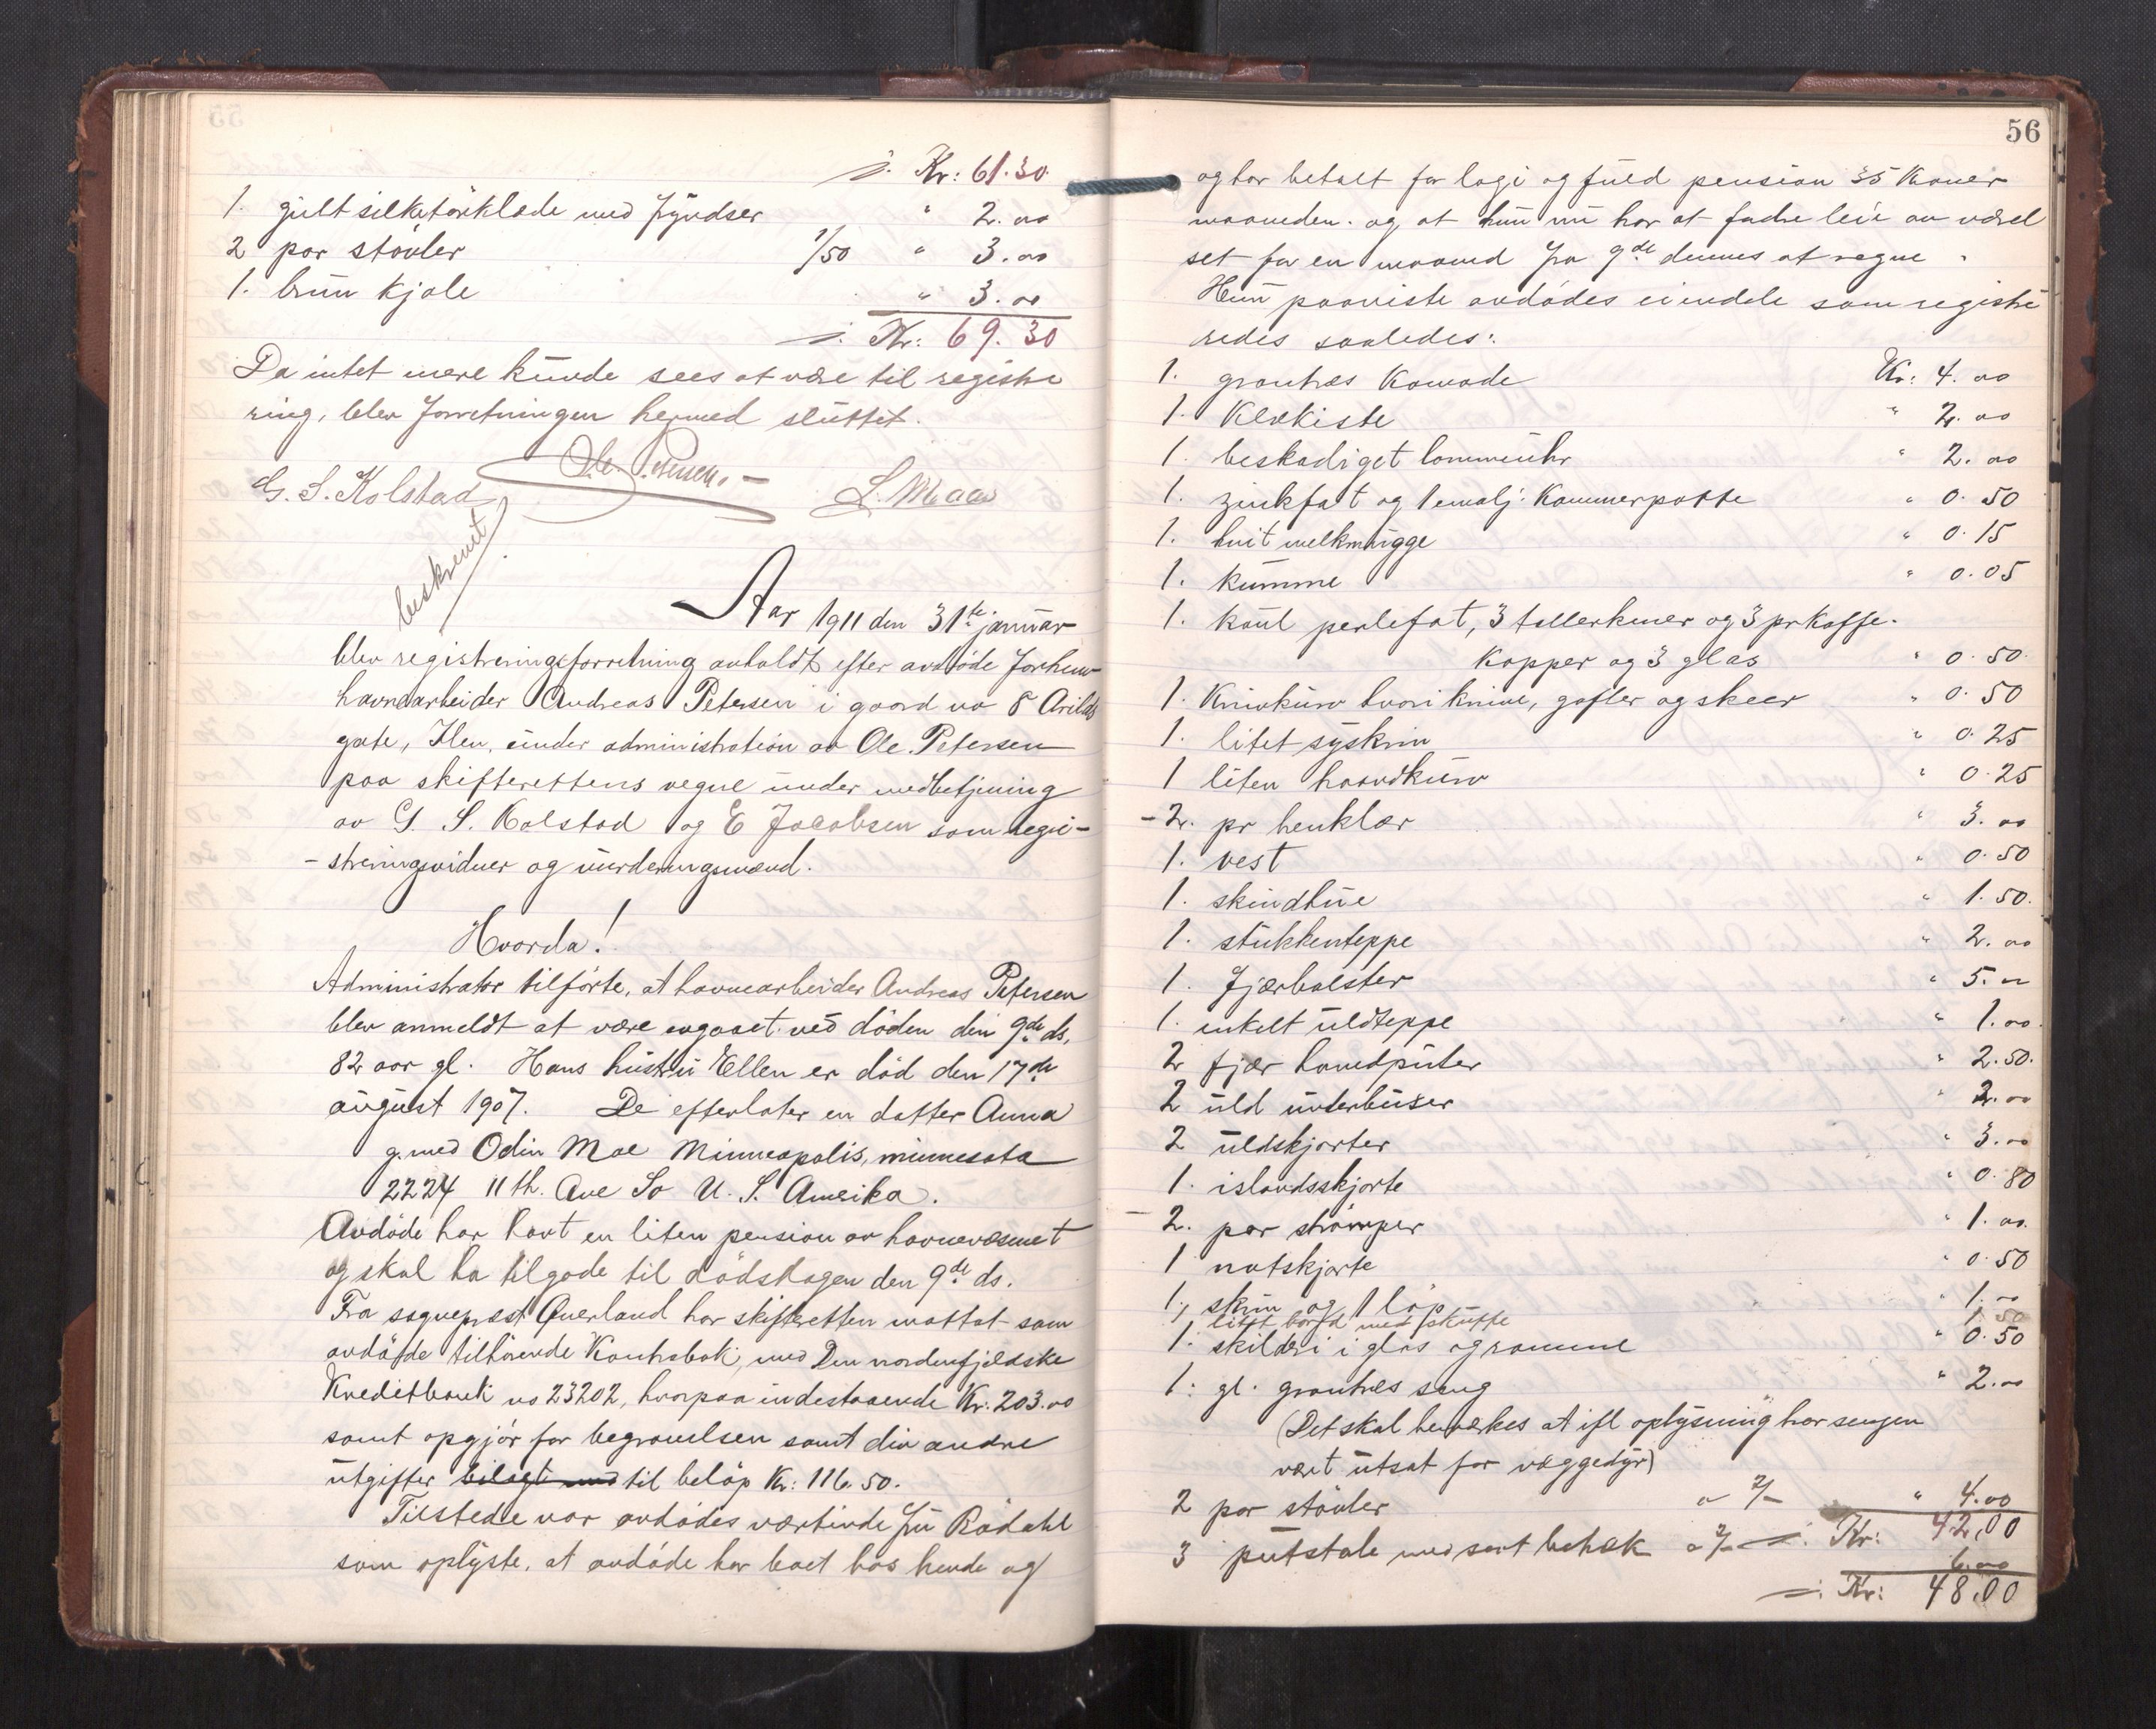 Kr: 61.30
1. gult silketørklæde med fryndser " 2.00
2 par støvler 1/50 " 3.00
1. brun kjole " 3.00
Kr: 69.30
Da intet mere kunde sees at være til registre
ring, blev forretningen hermed sluttet.
Ole Petersen
G. S. Kolstad L. Maao
beskrevet
Aar 1911 den 31te januar
blev registreringsforretning avholdt efter avdøde forhenv
havnearbeider Andreas Petersen i gaard no 8 Arilds
gate, Ilen, under administration av Ole Petersen
paa skifterettens vegne under medbetjening
av G. S. Kolstad og E Jacobsen som regi-
-streringsvidner og vurderingsmænd.
Hvorda!
Administrator tilførte, at havnearbeider Andreas Petersen
blev anmeldt at være avgaaet ved døden den 9de ds,
82 aar gl. Hans hustru Ellen er død den 17de
august 1907. De efterlater en datter Anna
g. med Odin Moe Minneapolis, minnesota
2224 11th. Ave So U. S. Amerika.
Avdøde har havt en liten pension av havnevæsenet
og skal ha tilgode til dødsdagen den 9de ds.
Fra sogneprest Querland har skifteretten mottat som
avdøde tilhørende Kontrabok, med Den nordenfjeldske
Kreditbank no 23202, hvorpaa indestaaende Kr. 203.00
samt opgjør for begravelsen samt div andre
utgifter bilagt med til beløp Kr: 116.50.
Tilstede var avdødes værtinde fru Rødahl
som oplyste, at avdøde har boet hos hende og
56
og har betalt for logi og fuld pension 35 Kroner
maaneden. og at hun nu har at fordre leie av værel
set for en maaned fra 9de dennes at regne.
Hun paaviste avdødes eiendele som registre
redes saaledes:
1. grantræs Komode Kr: 4.00
1. Klækiste " 2.00
1. beskadiget lommeuhr " 2.00
1. zinkfat og 1 emalj. Kammerpotte " 0.50
1. hvit melkmugge " 0.15
1. kumme " 0.05
1. kaul perlefat, 3 tallerkener og 3 pr Kaffe-
Kopper og 3 glas " 0.50
1. Knivkurv hvori knive, gafler og skeer " 0.50
1. litet syskrin " 0.25
1 liten haandkurv " 0.25
-2. pr benklær " 3.00
1. vest " 0.50
1. skindhue " 1.50.
1. stukkenteppe " 2.00
1. fjærbolster " 5.00
1. enkelt uldteppe " 1.00
2 fjær hovedputer " 2.50.
2 uld underbukser " 2.00
2 uldskjorter " 3.00
1. islandsskjorte " 0.80
-2. par strømper " 1.00.
1 natskjorte " 0.50
1. skrin og 1 løp " 1.00
1. litet bord med skuffe 1.50
1. skilderi i glas og ramme " 0.50
1. gl. grantræs seng " 2.00
(Det skal bemerkes at ifl oplysning har sengen
vært utsat for væggedyr)
2 par støvler a 2/- " 4.00
Kr: 42,00
3 putstole med sort betræk a 2/- 6.00
Kr: 48.00